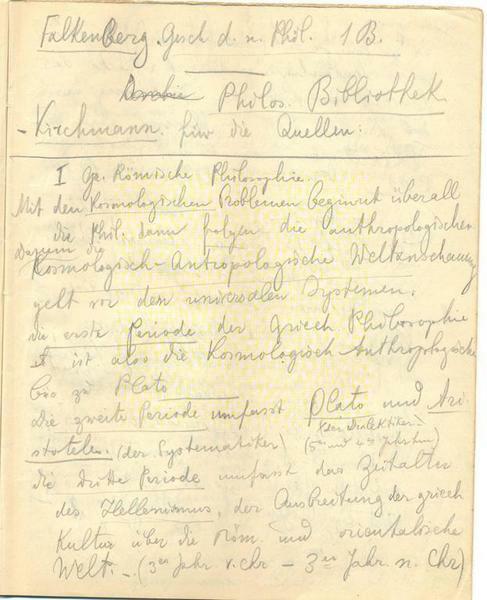 Falkenberg. Gesch d. n. Phil. 1 B.
Philos. Bibliothek
- Kirchmann. für die Quellen:
I Gr. Römische Philosophie.
Mit den Kosmologischen Problemen beginnt überall
die Phil. dann folgen die anthropologischen
Darum die
Kosmologisch-Antropologische Weltanschauung
gelt vor den universalen Systemen.
die erste Periode der Griech Philosophie
ist also die Kosmologisch Anthropologische
bis zu Plato
die zweite Periode umfasst Plato und Ari-
stoteles. (der Systematiker) (5en und 4en Jahrhun)
die dritte Periode umfasst das Zeitalter
des Hellenismus, der Ausbreitung der griech
Kultur über die Röm. und orientalische
Welt. - (3en Jahr v. Chr - 3en Jahr. n. Chr)